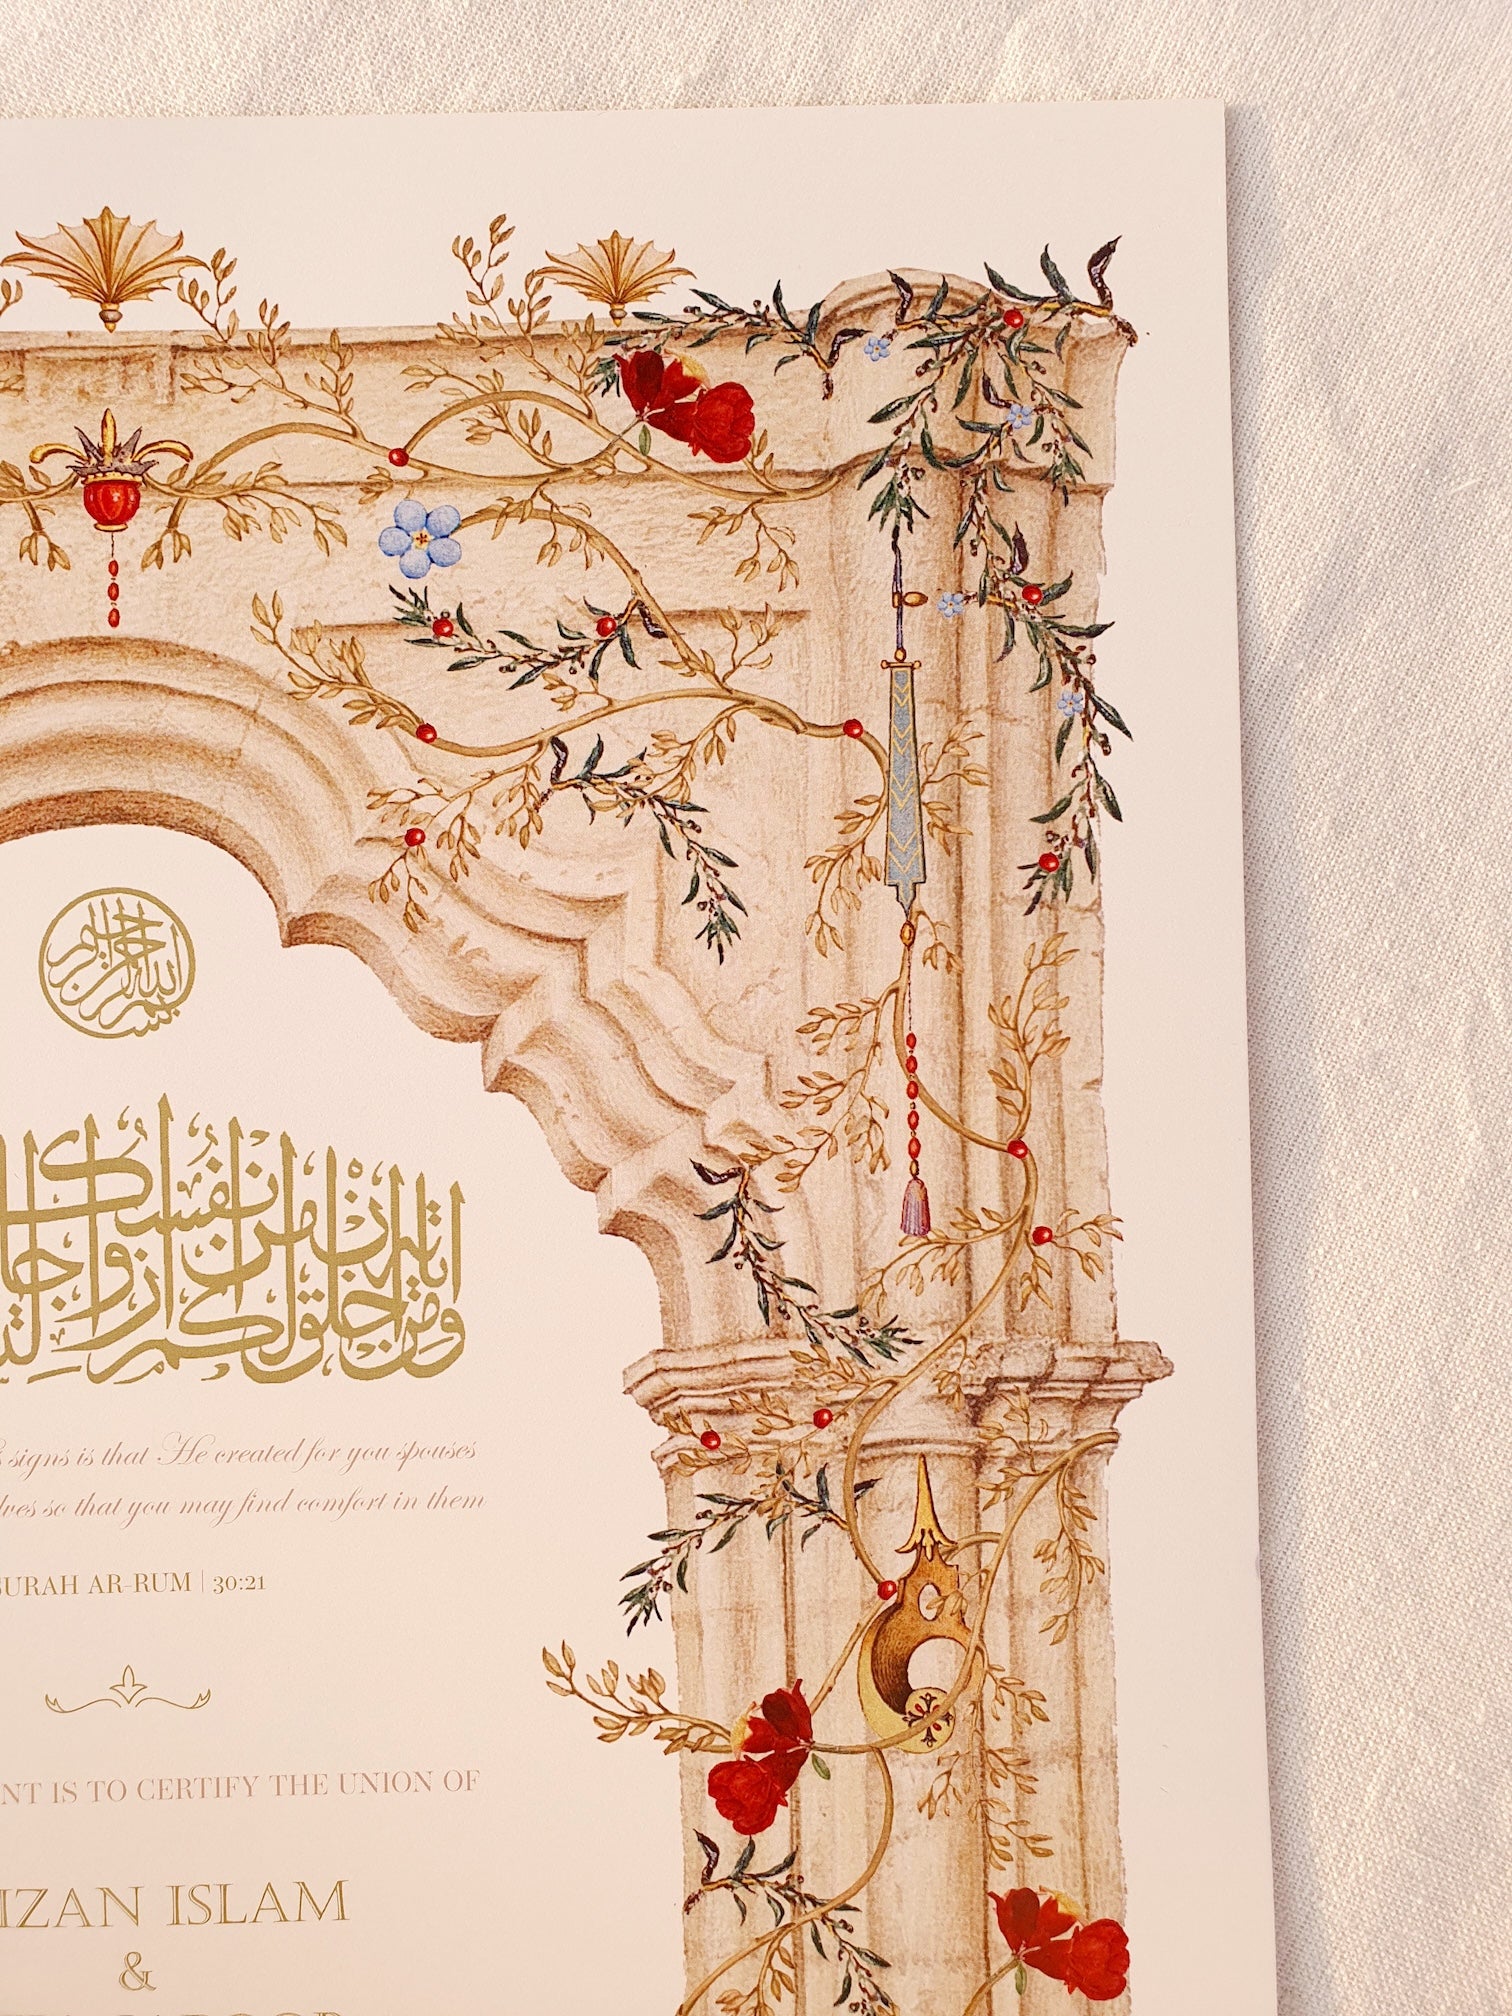 بسم الله الرحمن الرحيم
ومن اياته ان خلق لكم من انفسكم ازواجا
signs is that He created for you spouses
so that you may find comfort in them
SURAH AR-RUM | 30:21
IS TO CERTIFY THE UNION OF
IZAN ISLAM
&